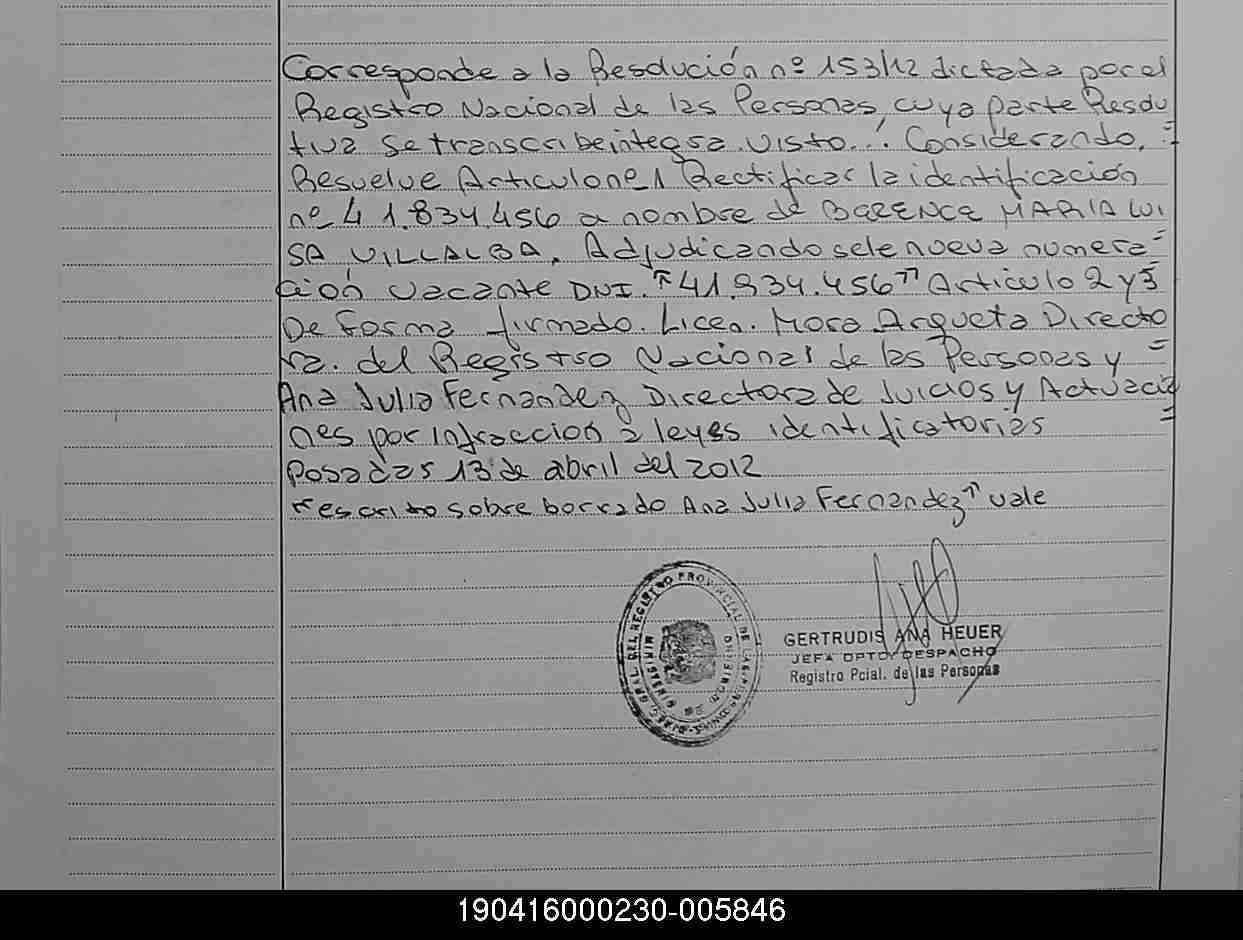 Corresponde a la Resolución nº 153/12 dictada por el
Registro Nacional de las Personas, cuya parte Resolu
tiva se transcribe integra. Visto... Considerando, =
Resuelve Articulo nº 1 Rectificar la identificación
nº 41.834.456 a nombre de MARIA LUI
SA VILLALBA. Adjudicando sele nueva numera =
ción vacante DNI. "41.934.456" Articulo 2 y 3
De forma firmado. Licen. Mora Arqueta Directo
ra. del Registro Nacional de las Personas y =
Ana Julia Fernandez Directora de Juicios y Actuacio
nes por Infraccion a leyes identificatorias =
Posadas 13 de abril del 2012
"escrito sobre borrado Ana Julia Fernandez" vale
GERTRUDIS ANA HEUER
JEFA DPTO. DESPACHO
Registro Pcial. de las Personas
GRAL. DEL REGISTRO PROVINCIAL DE LAS
190416000230-005846